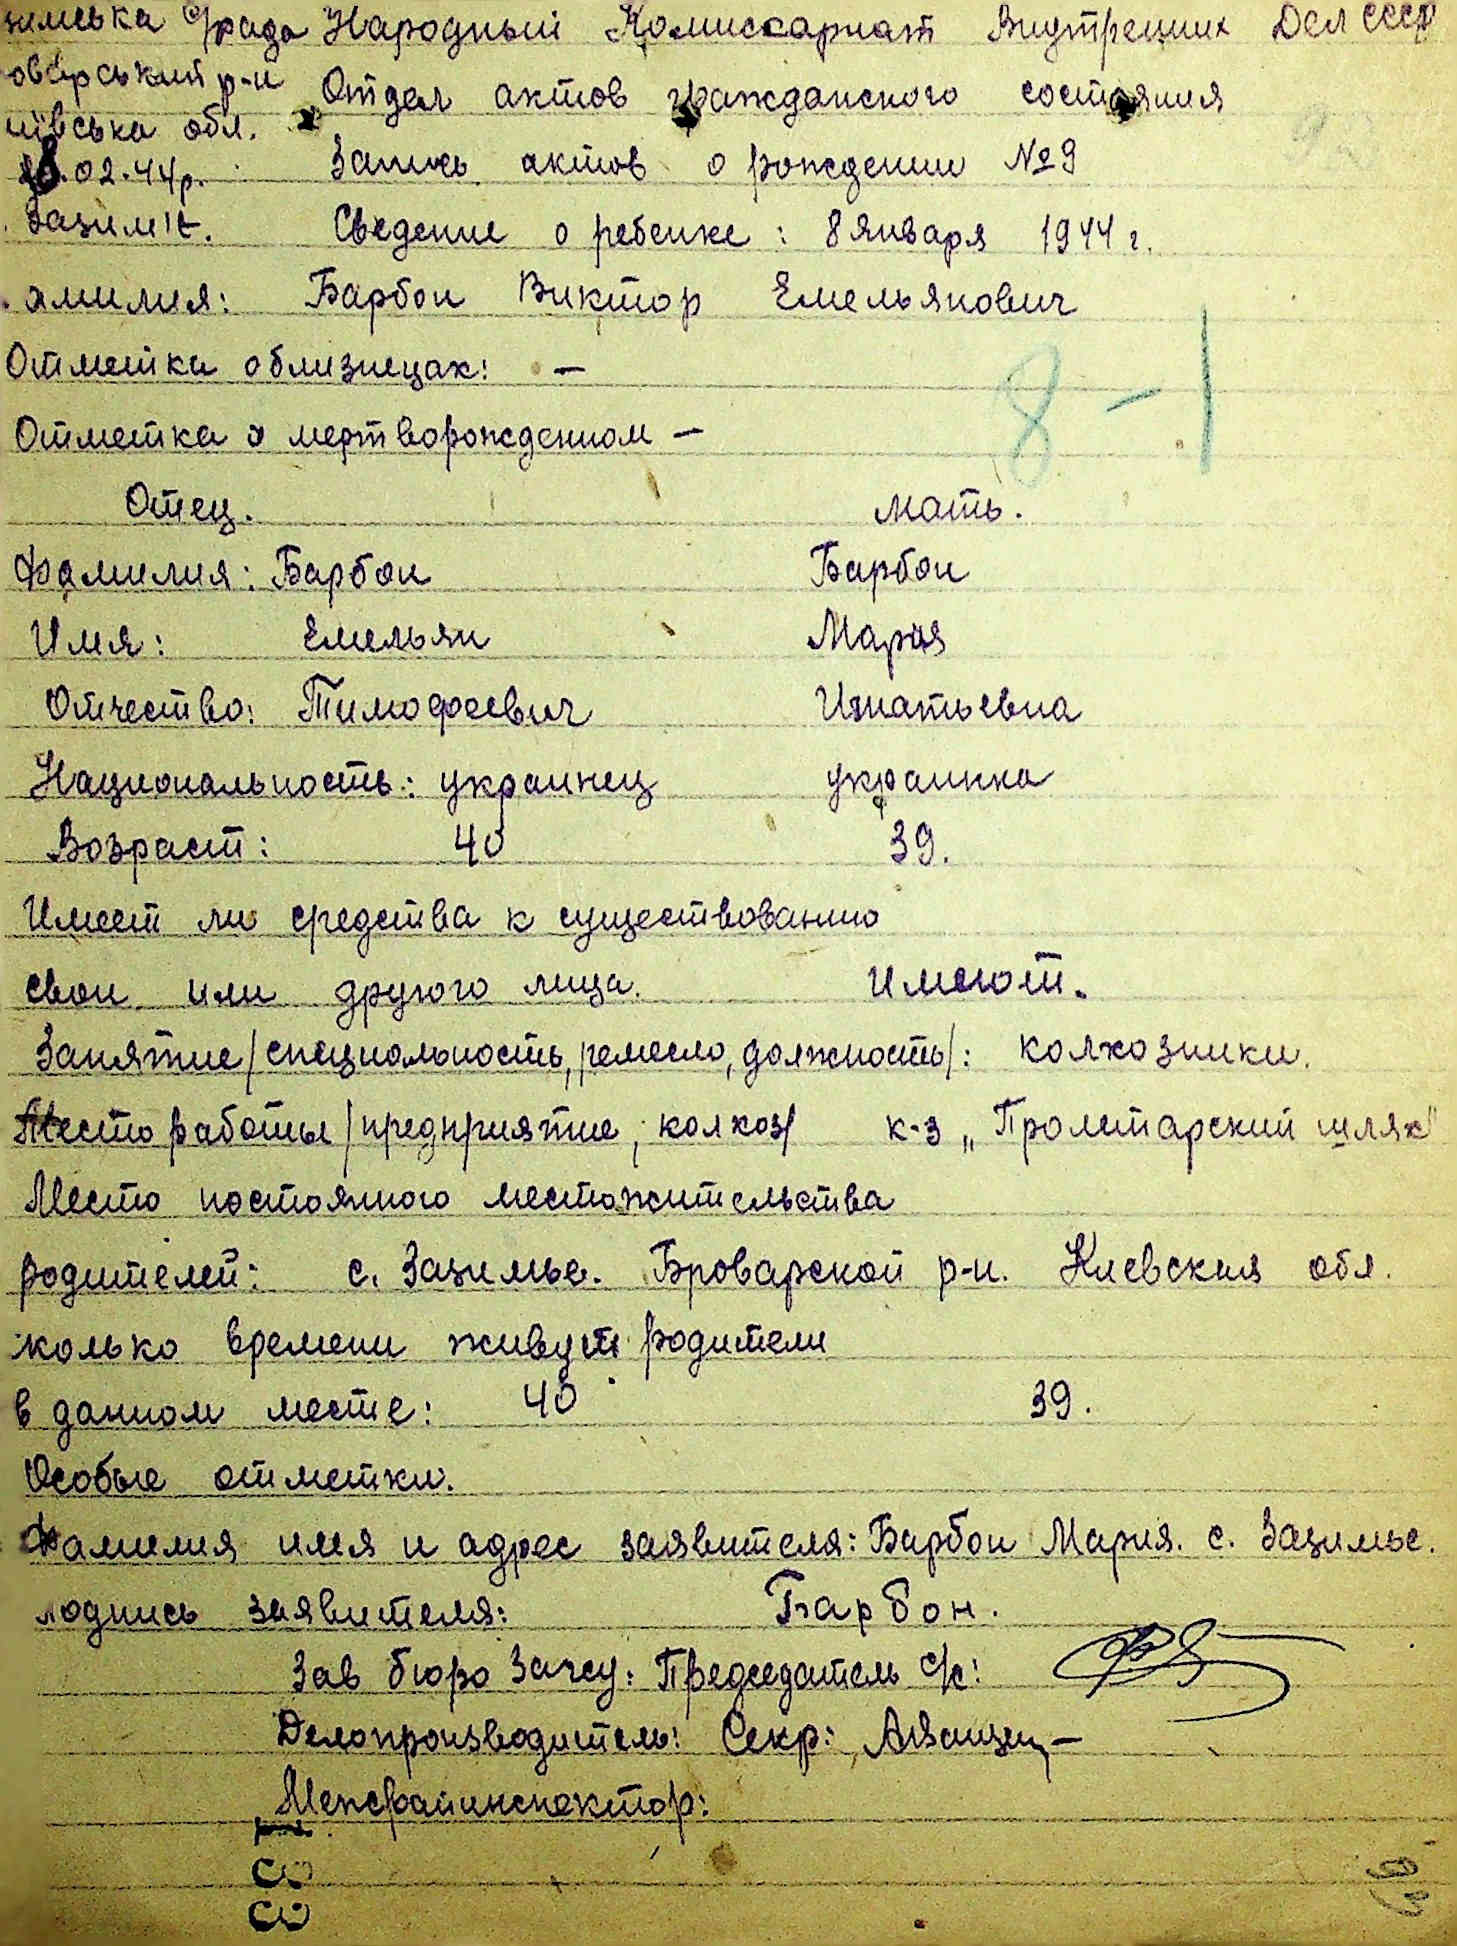 зимська Сільрада Народный Комиссариат Внутрених Дел СССР
оварський р-н Отдел актов гражданского состояния
ївська обл.
28.02.44р. Запись актов о рождении №9
Зазимʼє. Сведение о ребенке: 8 Января 1944 г.
амилия: Барбон Виктор Емельянович
Отметка о близнецах: —
8-1
Отметка о мертворожденном —
Отец. Мать.
Фамилия: Барбон Барбон
Имя: Емельян Мария
Отчество: Тимофеевич Игнатьевна
Национальность: украинец украинка
Возраст: 40 39.
Имеет ли средства к существованию
свои или другого лица. Имеют.
Занятие /специальность, ремесло, должность/: колхозники.
Место работы /предприятие, колхоз/ к-з „Пролитарский шлях"
Место постоянного местожительства
родителей: с. Зазимье. Броварской р-н. Киевская обл.
колько времени живут родители
в данном месте: 40 39.
Особые отметки.
Фамилия имя и адрес заявителя: Барбон Мария. с. Зазимье.
подпись заявителя: Барбон.
Зав бюро Загсу: Председатель с/с:
Делопроизводитель: Секр:
Менсрайинспектор:
93